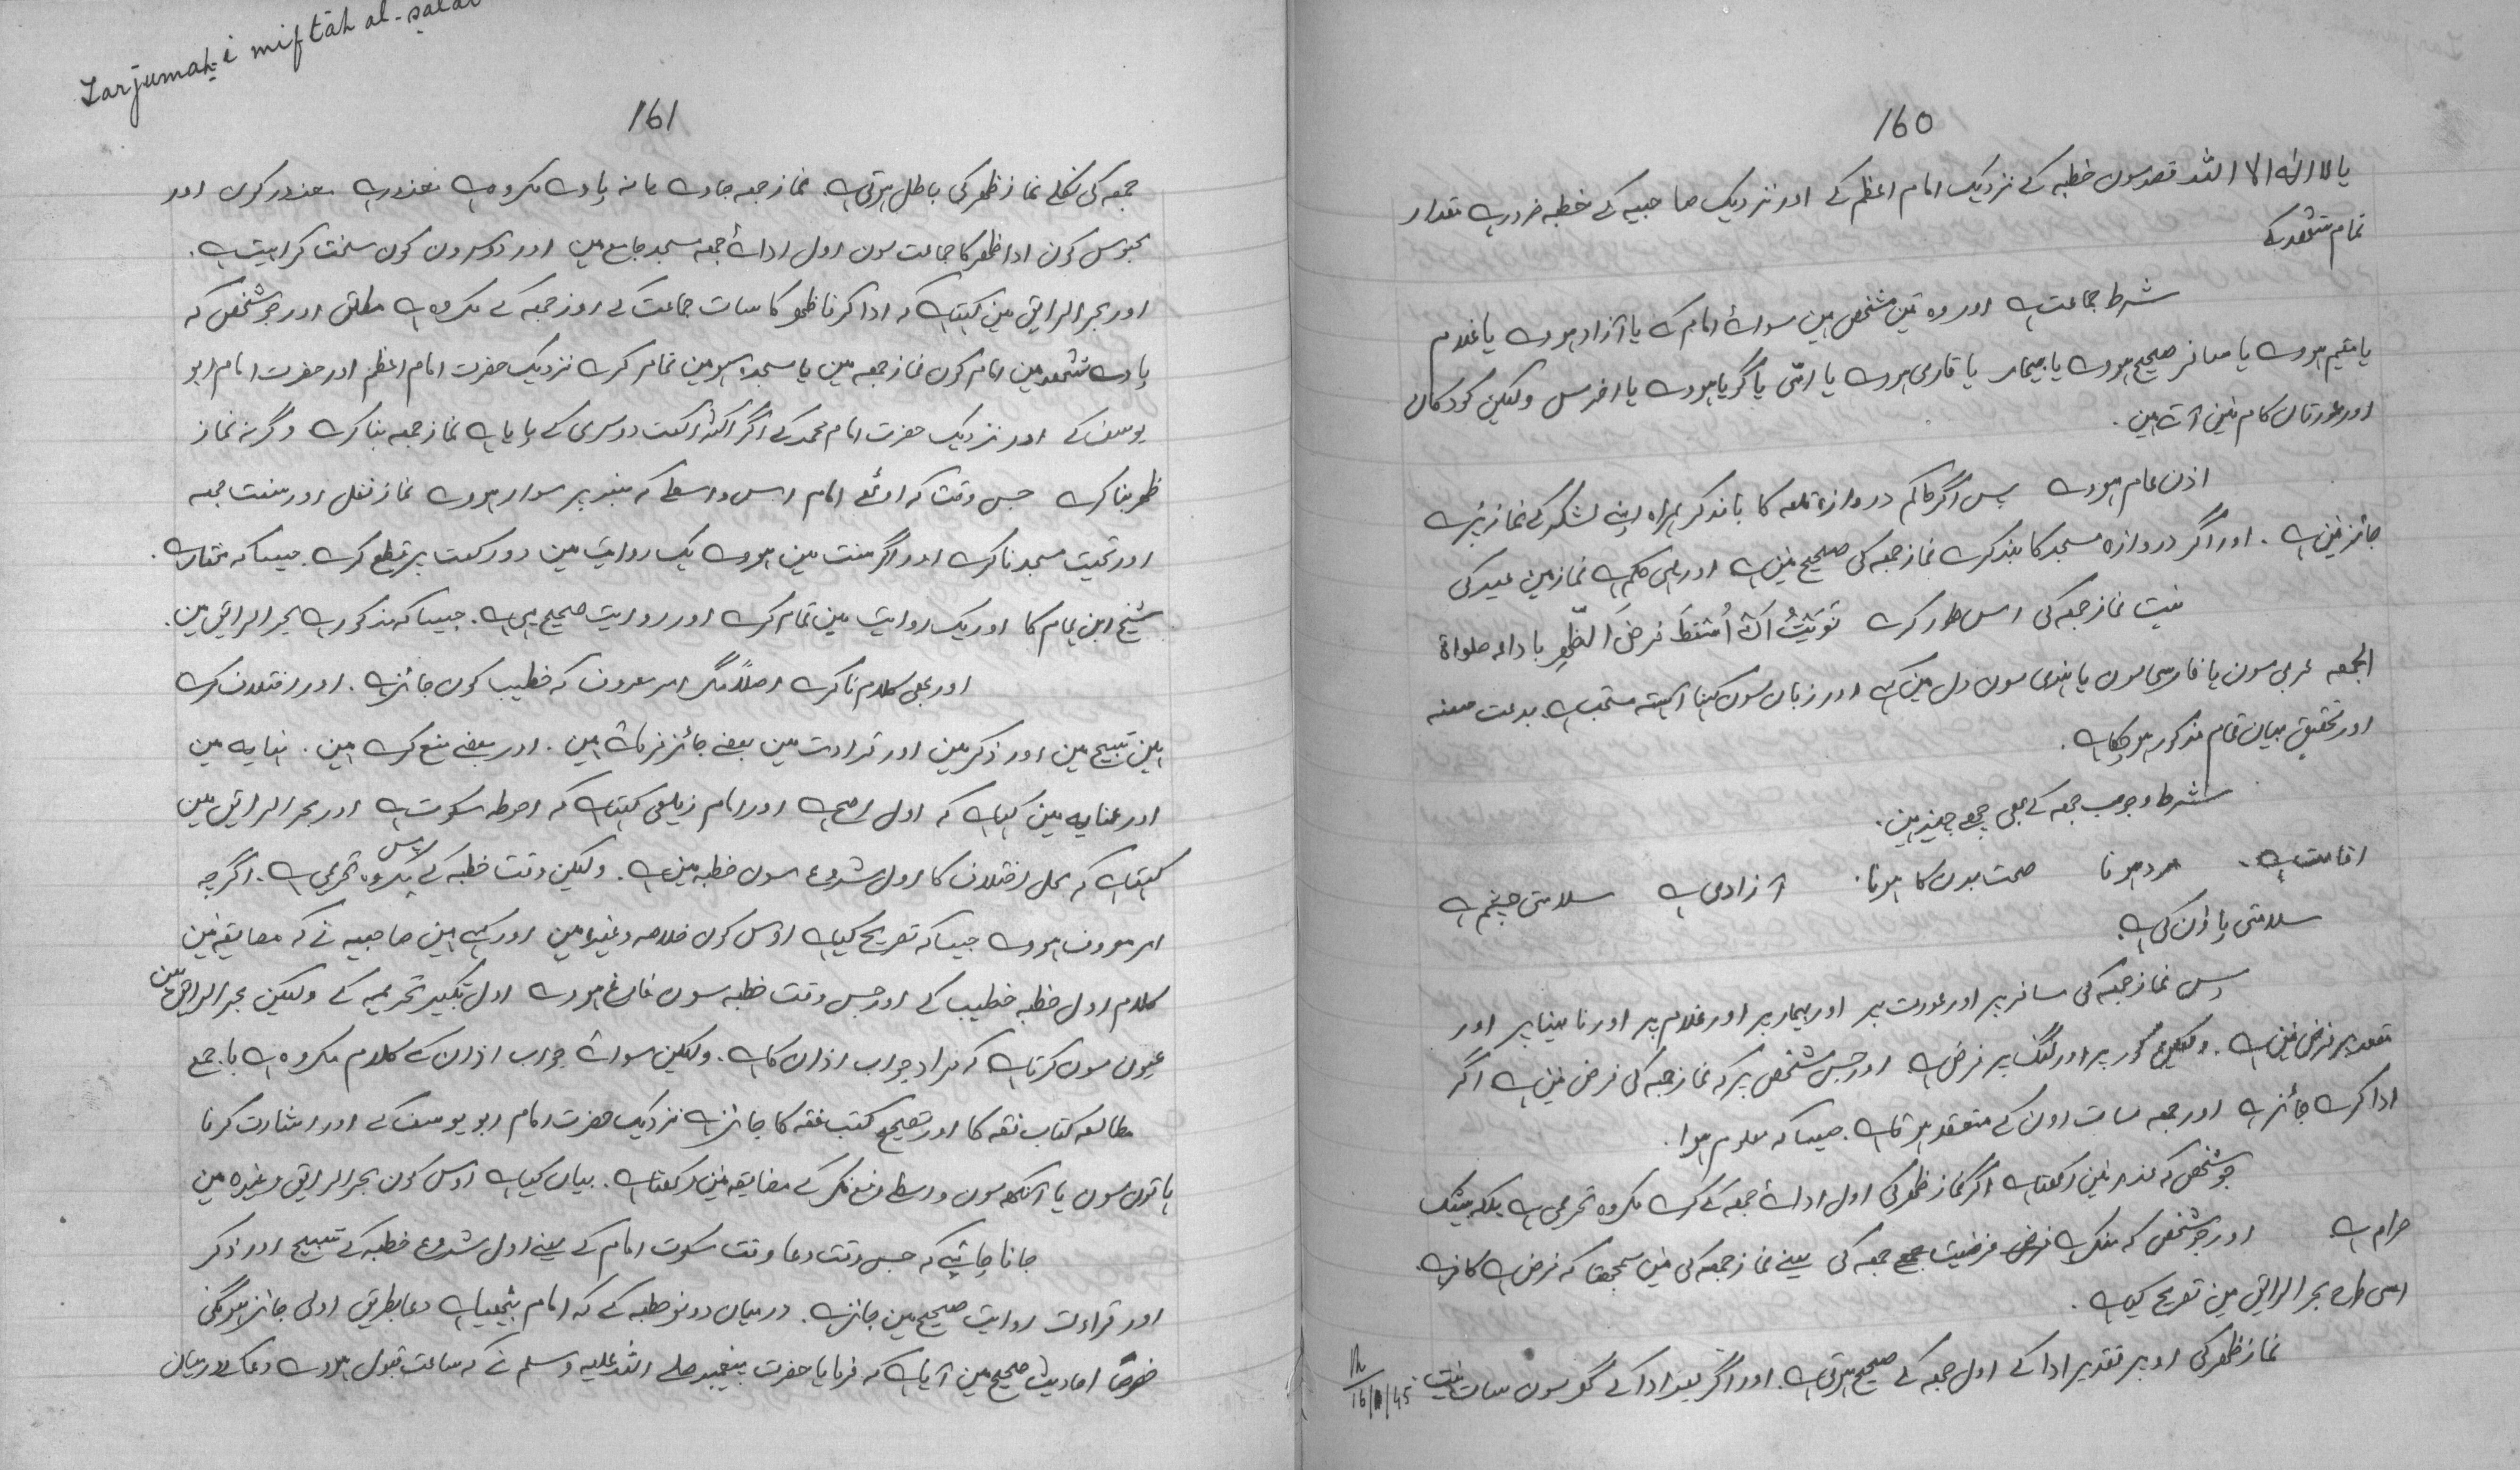 160
یا لا اله الا الله قصد سون خطبہ کے نزدیک امام اعظم کے اور نزدیک صاحبیہ کے خطبہ ضرور ہے مقدار
تمام تشھد کے
شرط جماعت ہے اور وہ تین شخص ہین سوائے امام کے یا آزاد ہووے یا غلام
یا مقیم ہووے یا مسافر صحیح ہووے یا بیمار یا قاری ہووے یا امّی یا گویا ہووے یا اخرس ولیکن کودکان
اور عورتان کام نین آتے ہین.
اذن عام ہووے پس اگر حاکم دروازہ قلعہ کا باندکر ہمراہ اپنے لشکر کے نماز پڑے
جائز نین ہے. اور اگر دروازہ مسجد کا بند کرے نماز جمعہ کی صحیح نین ہے اور یہی حکم ہے نماز مین عید کی
نیت نماز جمعہ کی اس طور کرے نَوَيْتُ اَنْ اُسْقِطَ فرضَ الظّهرِ باداء صلواة
الجمعہ عربی سون یا فارسی سون یا ہندی سون دل مین ہے اور زبان سون کہنا آہستہ مستحب ہے. بدعت حسنہ
اور تحقیق بیان تمام مذکور ہوچکا ہے.
شرط وجوب جمعہ کے بھی چھے چیز ہین.
اقامت ہے. مرد ہونا صحت بدن کا ہونا. آزادی ہے سلامتی چشم ہے
سلامتی پاؤن کی ہے.
پس نماز جمعہ کی مسافر پر اور عورت پر اور بیمار پر اور غلام پر اور نابینا پر اور
مقعد پر فرض نین ہے. ولیکن کور پر اور لنگ پر فرض ہے اور جس شخص پر کہ نماز جمعہ کی فرض نین ہے اگر
ادا کرے جائز ہے اور جمعہ سات اون کے منعقد ہوتا ہے. جیسا کہ معلوم ہوا.
جو شخص کہ عذر نین رکھتا ہے اگر نماز ظھر کی اول ادائے جمعہ کے کرے مکروہ تحریمی ہے بلکہ بیشک
حرام ہے. اور جو شخص کہ منکر ہے فرض فرضیت جمعہ کی یعنے نماز جمعہ کی نین سمجھتا کہ فرض ہے کافر ہے.
اسی طرح بحر الرایق مین تصریح کیا ہے.
نماز ظھر کی اوپر تقدیر ادا کے اول جمعہ کے صحیح ہوتی ہے. اور اگر بعد ادا کے گھر سون سات نیت
16/11/45
Tarjumah-i miftāh al-salāt
161
جمعہ کی نکلے نماز ظھر کی باطل ہوتی ہے. نماز جمعہ جاوے یا نہ پاوے مکروہ ہے معذور ہے. معذور کون اور
محبوس کون ادا ظھر کا جماعت سون اول ادائے جمعہ مسجد جامع مین اور دوسرون کون سخت کراہیت ہے.
اور بحر الرایق مین کہتا ہے کہ ادا کرنا ظھر کا سات جماعت کے روز جمعہ کے مکروہ ہے مطلق اور جو شخص کہ
پاوے تشھد مین امام کون نماز جمعہ مین یا سجدہ سہو مین تمام کرے نزدیک حضرت امام اعظم اور حضرت امام ابو
یوسف کے اور نزدیک حضرت امام محمد کے اگر اکثر رکعت دوسری کے پایا ہے نماز جمعہ بنا کرے وگرنہ نماز
ظھر بنا کرے جس وقت کہ اوٹھے امام اس واسطے کہ منبر پر سوار ہووے نماز نفل اور سنت جمعہ
اور تحیت مسجد نا کرے اور اگر سنت مین ہووے یک روایت مین دو رکعت پر قطع کرے. جیسا کہ مختار ہے.
شیخ ابن ہمام کا اور یک روایت مین تمام کرے اور روایت صحیح یہی ہے. جیسا کہ مذکور ہے بحر الرایق مین.
اور بھی کلام نا کرے اصلاً مگر امر معروف کہ خطیب کون جائز ہے. اور اختلاف کرے
ہین تسبیح مین اور ذکر مین اور قراءت مین بعضے جائز فرماتے ہین. اور بعضے منع کرے ہین. نہایہ مین
اور عنایہ مین کہا ہے کہ اول اصح ہے اور امام زیلعی کہتا ہے کہ احوط سکوت ہے اور بحر الرایق مین
کہتا ہے کہ محل اختلاف کا اول شروع سون خطبہ مین ہے. ولیکن وقت خطبہ کے پس مکروہ تحریمی ہے. اگرچہ
امر معروف ہووے جیسا کہ تصریح کیا ہے اوس کون خلاصہ وغیرہ مین اور کہے ہین صاحبیہ نے کہ مضایقہ نین
کلام اول خطبہ خطیب کے اور جس وقت خطبہ سون فارغ ہووے اول تکبیر تحریمیہ کے ولیکن بحر الرایق مین
عیون سون کرتا ہے کہ مراد جواب اذان کا ہے. ولیکن سوائے جواب اذان کے کلام مکروہ ہے باجمع
مطالعہ کتاب فقہ کا اور تصحیح کتب فقہ کا جائز ہے نزدیک حضرت امام ابو یوسف کے اور اشارت کرنا
ہاتون سون یا آنکھ سون واسطے دفع منکر کے مضایقہ نین رکھتا ہے. بیان کیا ہے اوس کون بحر الرایق وغیرہ مین
جانا چاہئے کہ جس وقت دعا وقت سکوت امام کے یعنے اول شروع خطبہ کے تسبیح اور ذکر
اور قراءت روایت صحیح مین جائز ہے. درمیان دونو خطبہ کے کہ امام بیٹھیا ہے دعا بطریق اولی جائز ہوگئی
خصوصاً احادیث صحیح مین آیا ہے کہ فرمایا حضرت پیغمبر صلے اللہ علیہ وسلم نے کہ ساعت قبول ہووے دعا کے درمیان